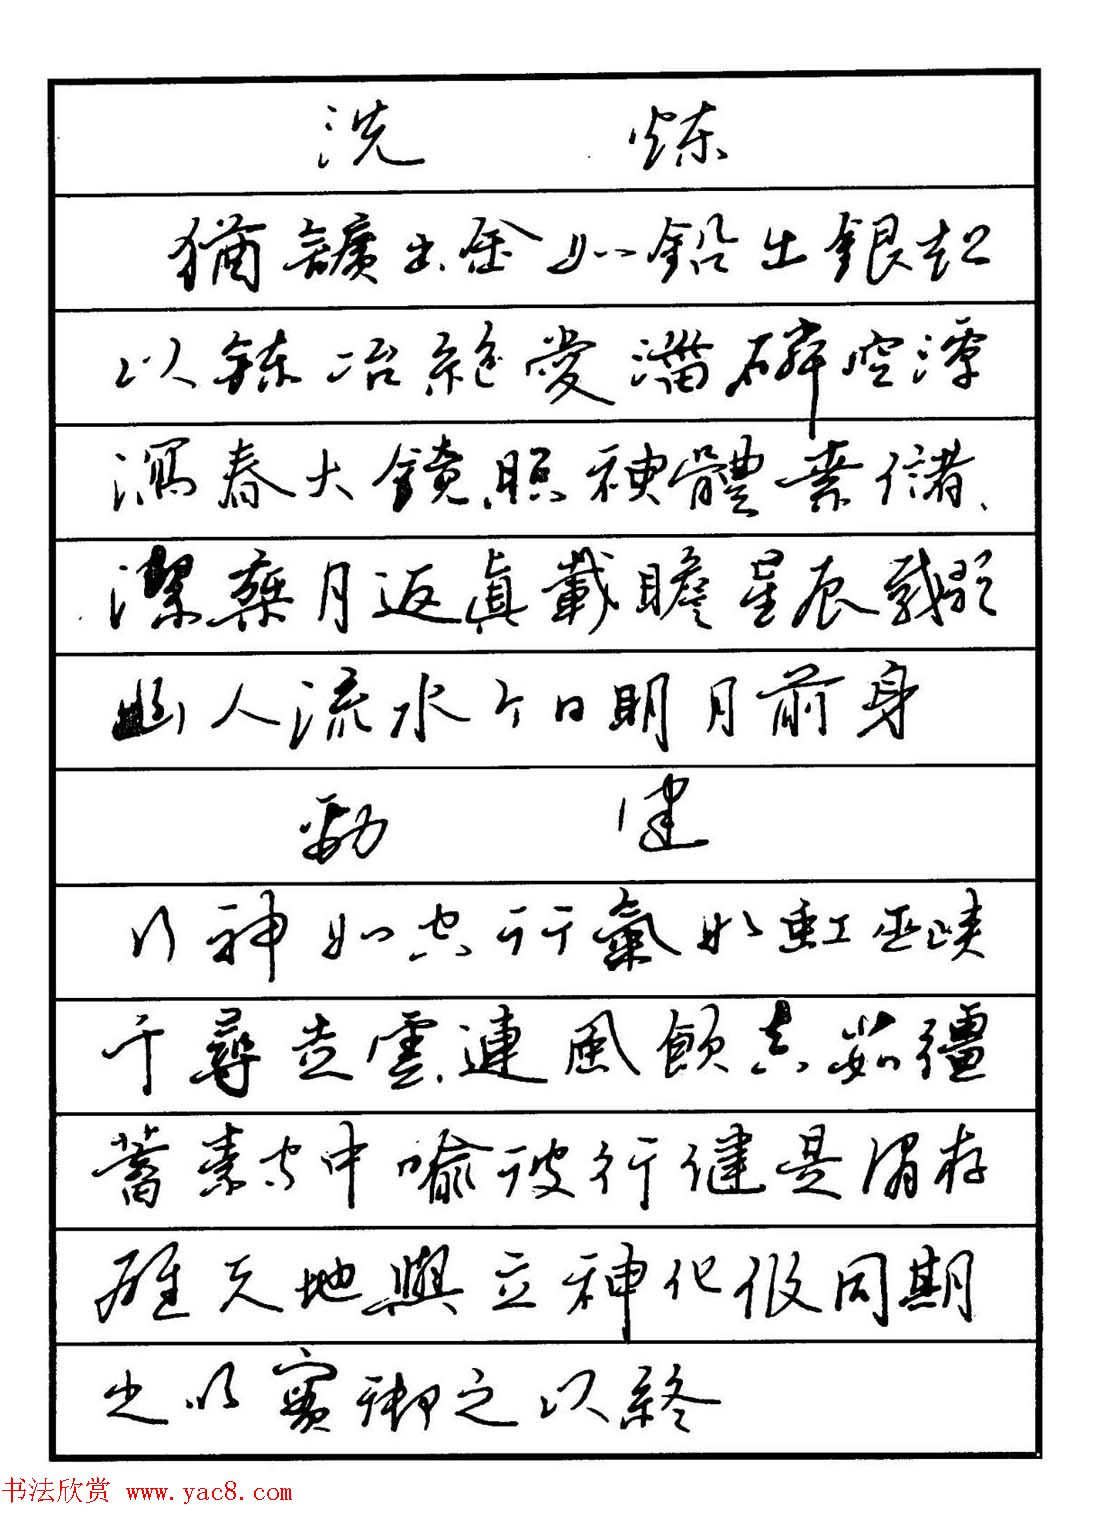 洗 炼
猶鑛出金如鉛出銀超
以鍊冶絕愛淄磷空潭
瀉春大鏡照神體素儲
潔乘月返真載瞻星辰載歌
幽人流水今日明月前身
勁 健
行神如空行氣如虹巫峽
千尋走雲連風飲真茹彊
蓄素守中喻彼行健是謂存
雄天地與立神化攸同期
之以實御之以終
书法欣赏 www.yac8.com